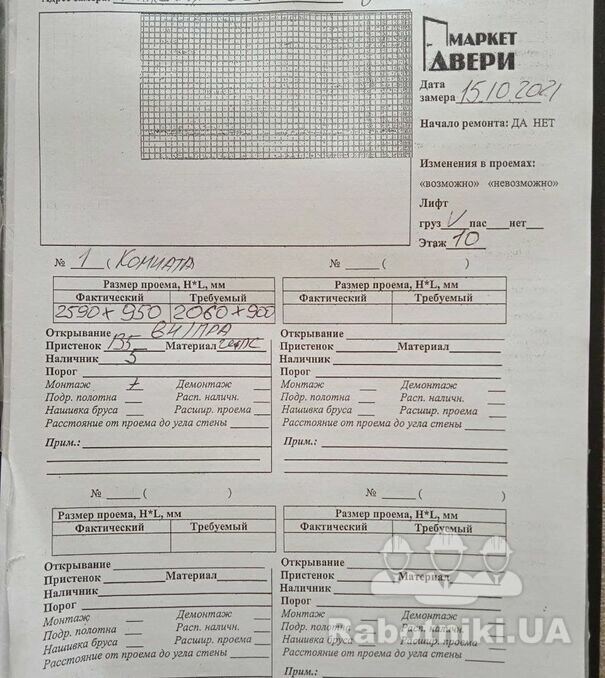 Адрес замера:
МАРКЕТ
ДВЕРИ
Дата
замера 15.10.2021
Начало ремонта: ДА НЕТ
Изменения в проемах:
«возможно» «невозможно»
Лифт
груз V пас нет
Этаж 10
№ 1 ( КОМНАТА
№ ( )
Размер проема, H*L, мм
Фактический Требуемый
2590 x 950 2060 x 900
Открывание ВН/ПРА
Пристенок 135 Материал
Наличник 5
Порог
Монтаж + Демонтаж
Подр. полотна Расп. наличн.
Нашивка бруса Расшир. проема
Расстояние от проема до угла стены
Прим.:
Размер проема, H*L, мм
Фактический Требуемый
Открывание
Пристенок Материал
Наличник
Порог
Монтаж Демонтаж
Подр. полотна Расп. наличн.
Нашивка бруса Расшир. проема
Расстояние от проема до угла стены
Прим.:
№ ( )
№ ( )
Размер проема, H*L, мм
Фактический Требуемый
Открывание
Пристенок Материал
Наличник
Порог
Монтаж Демонтаж
Подр. полотна Расп. наличн.
Нашивка бруса Расшир. проема
Расстояние от проема до угла стены
Размер проема, H*L, мм
Фактический Требуемый
Открывание
Пристенок Материал
Наличник
Порог
Монтаж Демонтаж
Подр. полотна Расп. наличн.
Нашивка бруса Расшир. проема
Расстояние от проема до угла стены
Прим.:
Rabotniki.UA